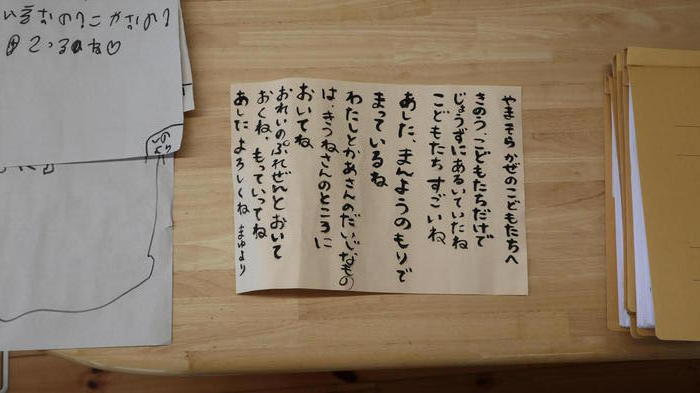 やま そら かぜのこどもたちへ
きのう、こどもたちだけで
じょうずにあるいていたね
こどもたち すごいね
あした、まんようのもりで
まっているね
わたしとかあさんのだいじなもの
は、きつねさんのところに
おいてね
おれいのぷれぜんとおいて
おくね。もっていってね
あした よろしくね まゆより